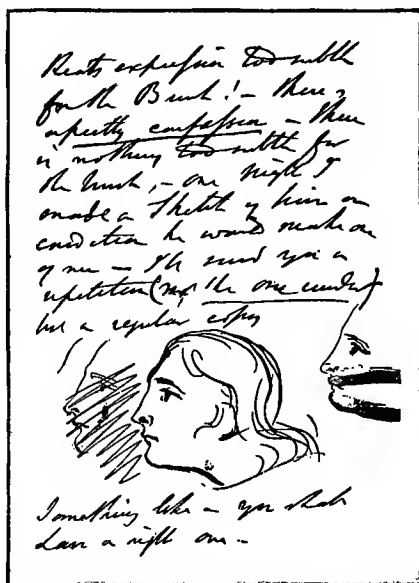 Keats expression too subtle
for the Brush! — There is
a pretty confession — There
is nothing too subtle for
the brush, — one night I
made a sketch of him on
condition he would make one
of me — I'll send you a
repetition (not the one made)
but a regular copy
Something like — you shall
have a right one —